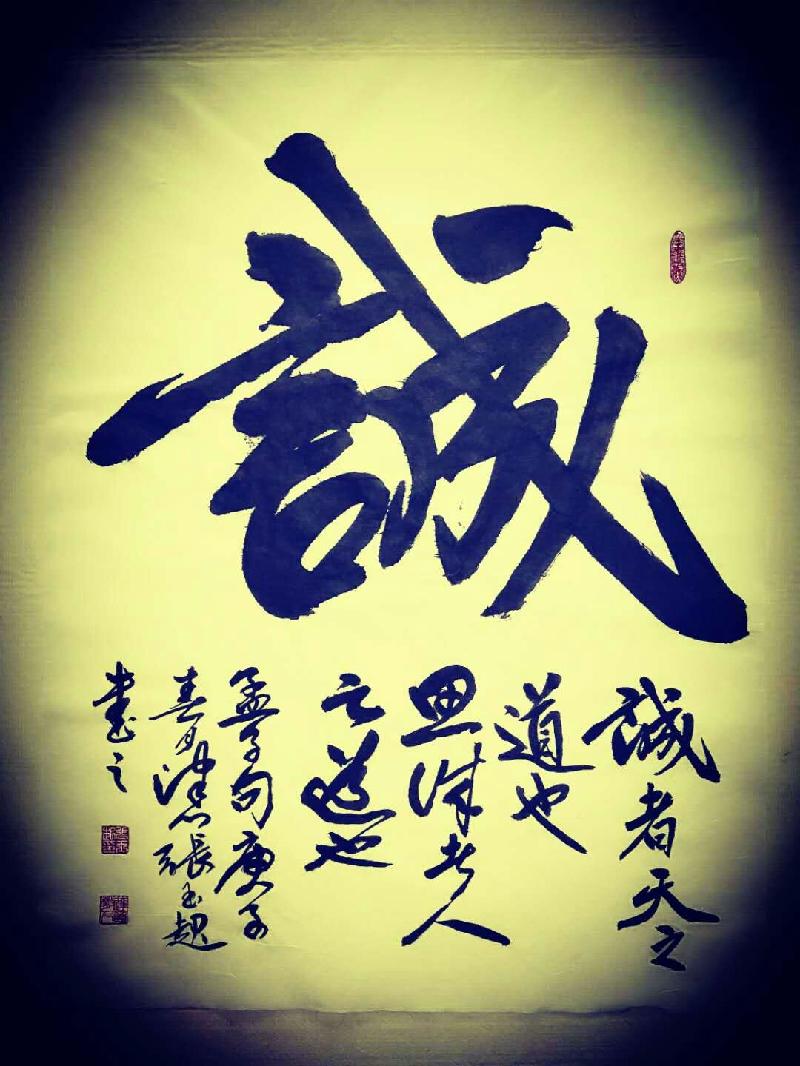 誠
誠者天之
道也
思诚者人
之道也
孟子句庚子
春月津沽張玉超
書之